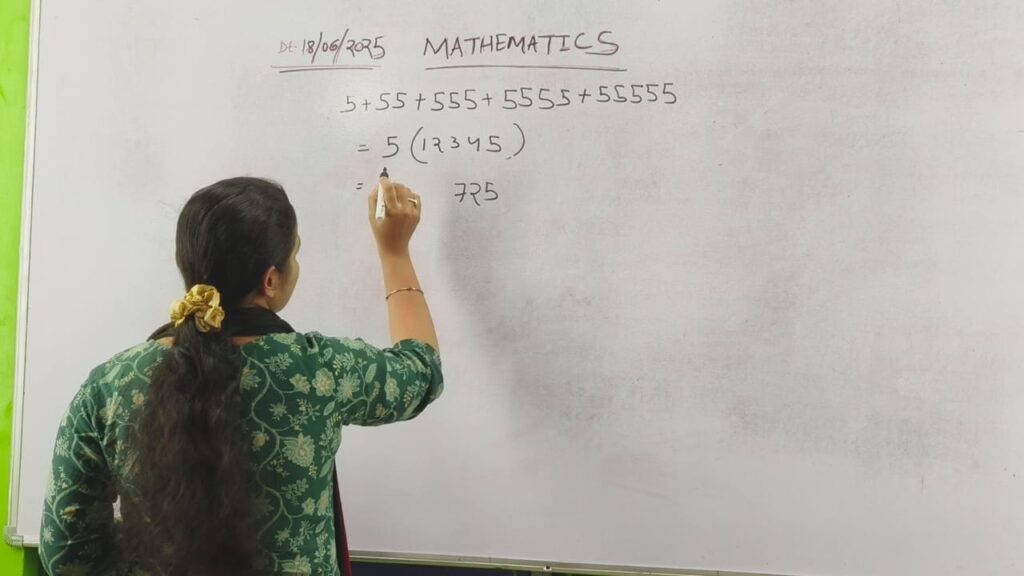 Dt. 18/06/2025 MATHEMATICS
5+55+555+5555+55555
= 5(12345)
= 725